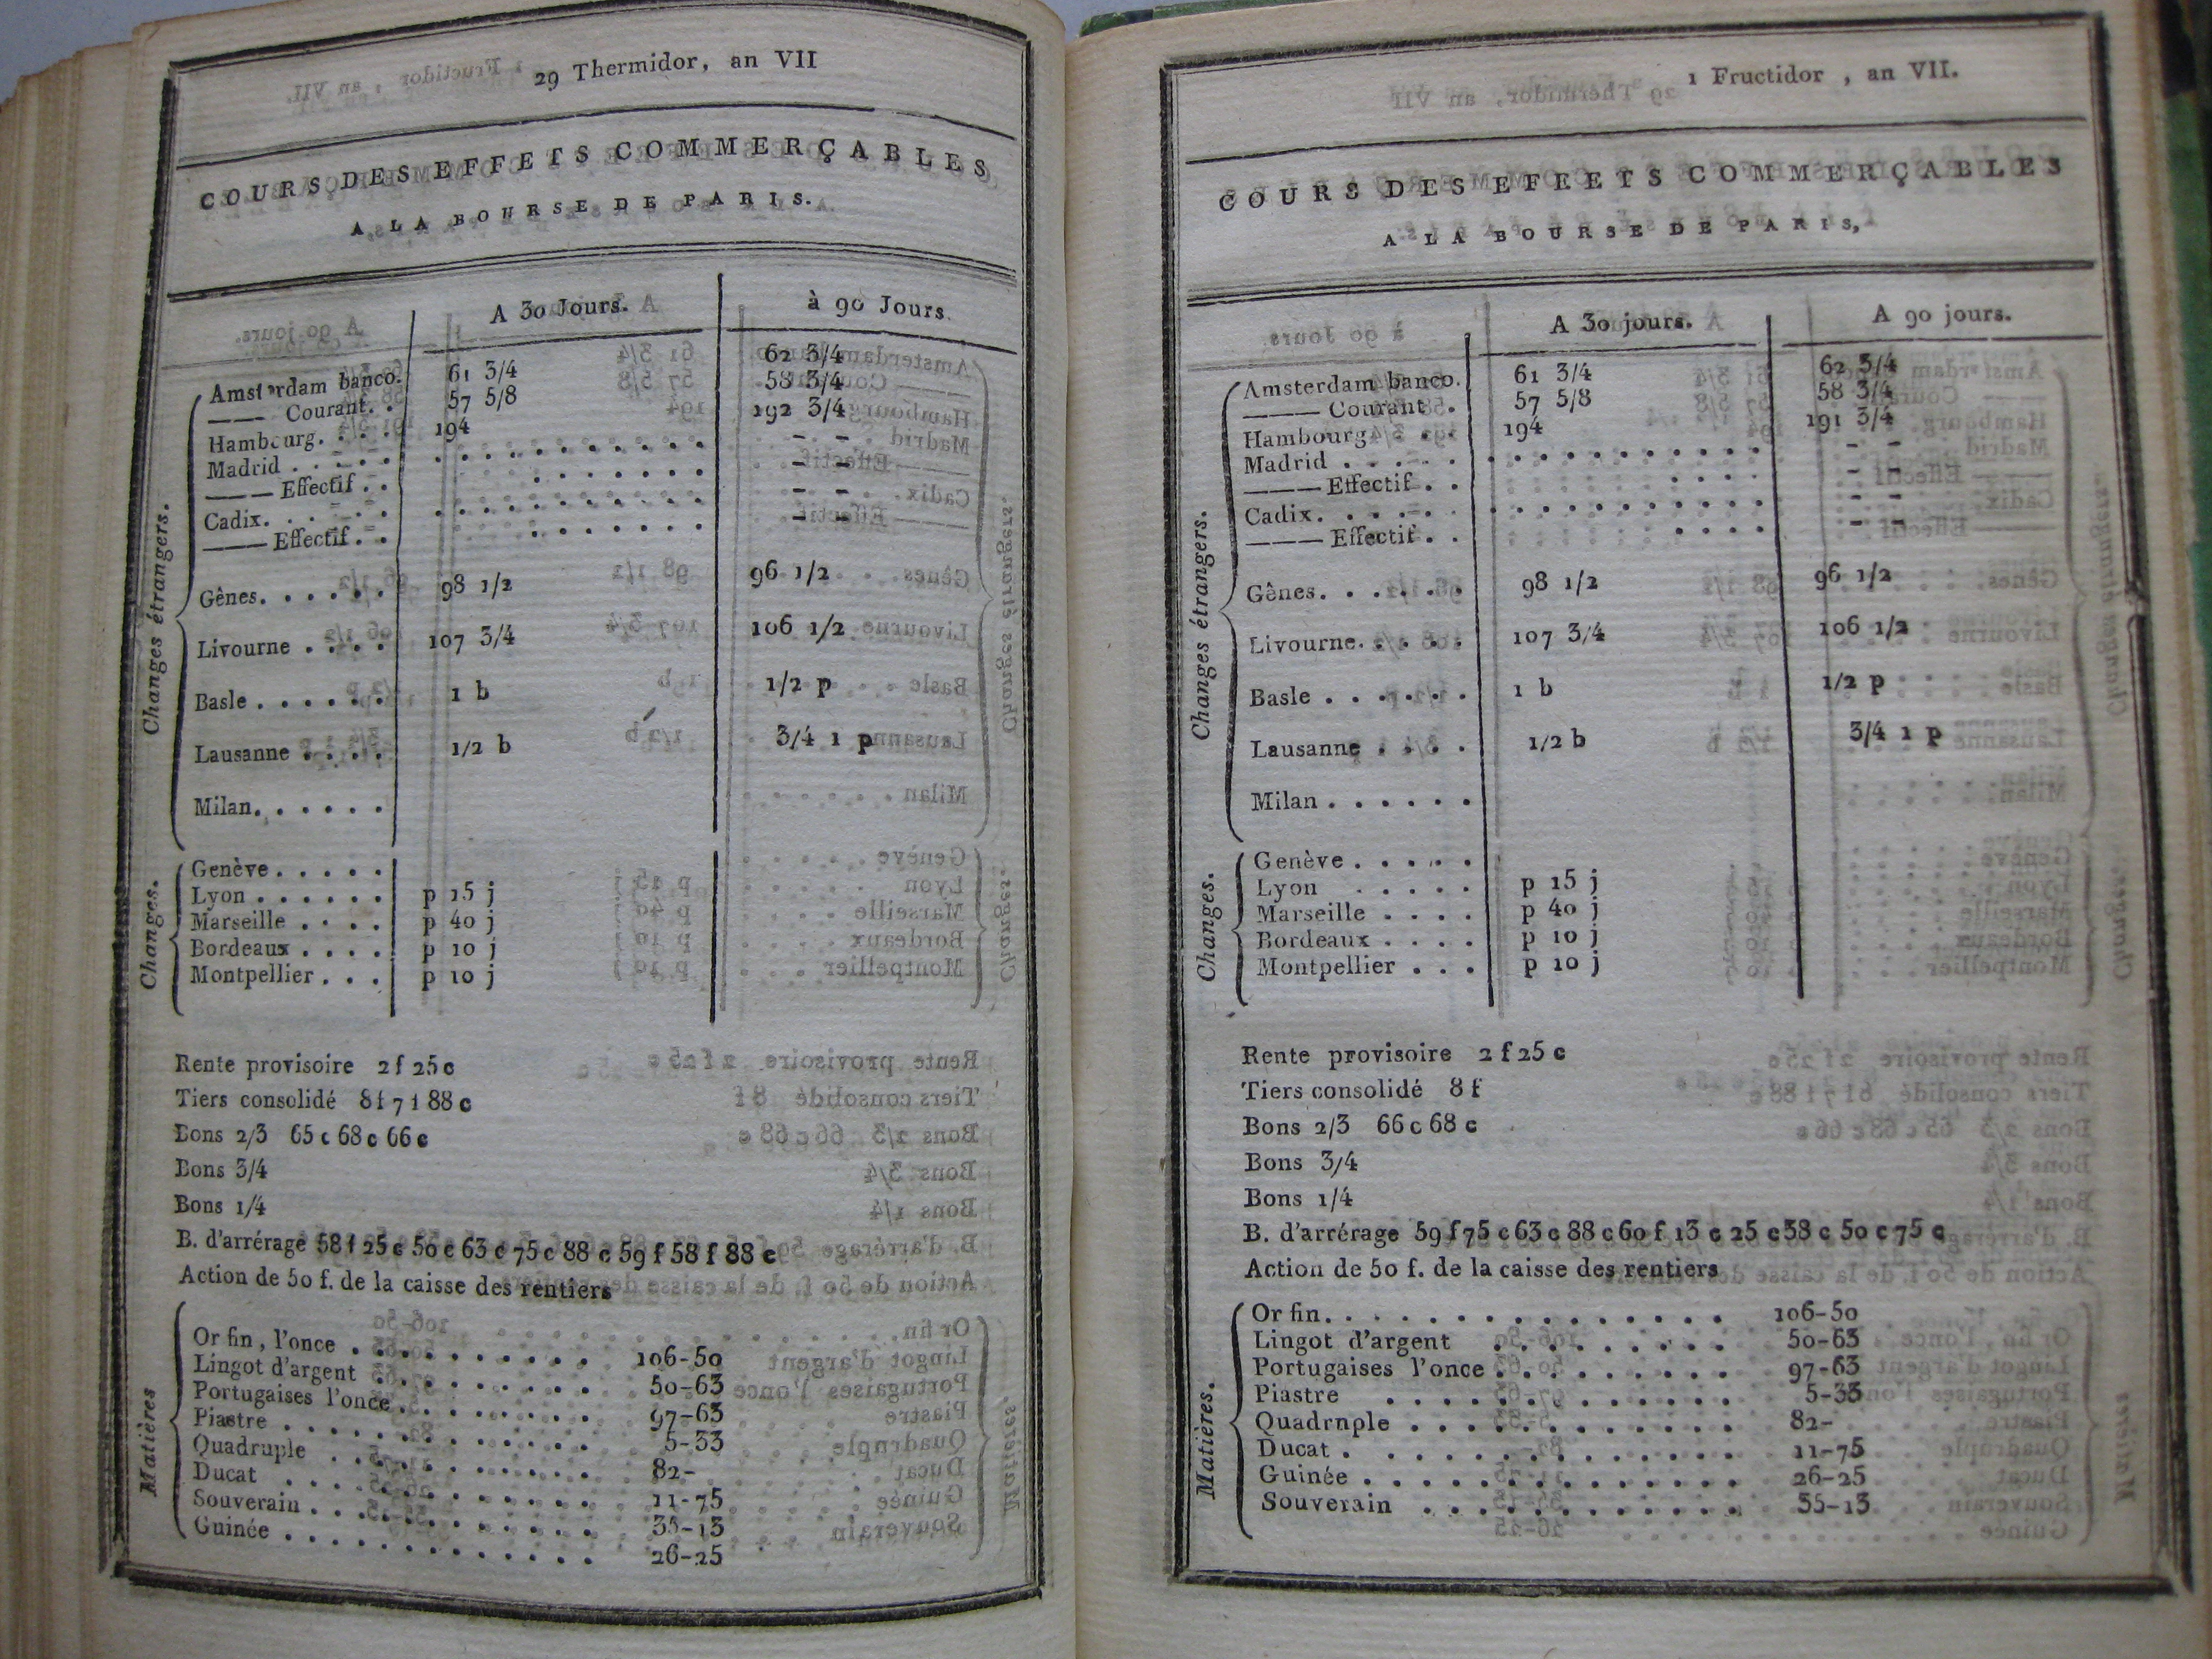 29 Thermidor, an VII
COURS DES EFFETS COMMERÇABLES
A LA BOURSE DE PARIS.
A 30 Jours. à 90 Jours.
Changes étrangers.
Amsterdam banco. 61 3/4 62 3/4
——— Courant. . 57 5/8 58 3/4
Hambourg. . . . 194 192 3/4
Madrid . . . . . . . . . . . . . . . – –
——— Effectif . . . . . . . . . – –
Cadix. . . . . . . . . . . . . . . . – –
——— Effectif . . . . . . . . . – –
Gênes. . . . . . 98 1/2 96 1/2
Livourne . . . . 107 3/4 106 1/2
Basle . . . . . . 1 b 1/2 p
Lausanne . . . . 1/2 b 3/4 1 p
Milan. . . . . .
Changes.
Genève . . . . .
Lyon . . . . . . p 15 j
Marseille . . . . p 40 j
Bordeaux . . . . p 10 j
Montpellier . . . p 10 j
Rente provisoire 2 f 25 c
Tiers consolidé 8 f 7 f 88 c
Bons 2/3 65 c 68 c 66 c
Bons 3/4
Bons 1/4
B. d'arrérage 58 f 25 c 50 c 63 c 75 c 88 c 59 f 58 f 88 c
Action de 50 f. de la caisse des rentiers
Matières
Or fin, l'once . . . . . . . . . . 106-50
Lingot d'argent . . . . . . . . . 50-63
Portugaises l'once . . . . . . . . 97-63
Piastre . . . . . . . . . . . . . 5-33
Quadruple . . . . . . . . . . . . 82-
Ducat . . . . . . . . . . . . . . 11-75
Souverain . . . . . . . . . . . . 35-13
Guinée . . . . . . . . . . . . . 26-25
1 Fructidor , an VII.
COURS DES EFEETS COMMERÇABLES
A LA BOURSE DE PARIS,
A 30 jours. A 90 jours.
Changes étrangers.
Amsterdam banco. 61 3/4 62 3/4
——— Courant . 57 5/8 58 3/4
Hambourg. . . 194 191 3/4
Madrid . . . . . . . . . . . . . . . – –
——— Effectif . . . . . . – –
Cadix. . . . . . . . . . . . . . . . – –
——— Effectif . . . . . . – –
Gênes. . . . . . 98 1/2 96 1/2
Livourne. . . . . 107 3/4 106 1/2
Basle . . . . . . 1 b 1/2 p
Lausanne . . . . 1/2 b 3/4 1 p
Milan . . . . . .
Changes.
Genève . . . . .
Lyon . . . . . p 15 j
Marseille . . . . p 40 j
Bordeaux . . . . p 10 j
Montpellier . . . p 10 j
Rente provisoire 2 f 25 c
Tiers consolidé 8 f
Bons 2/3 66 c 68 c
Bons 3/4
Bons 1/4
B. d'arrérage 59 f 75 c 63 c 88 c 60 f 13 c 25 c 38 c 50 c 75 c
Action de 50 f. de la caisse des rentiers
Matières.
Or fin. . . . . . . . . . . . . . . 106-50
Lingot d'argent . . . . . . . . . 50-63
Portugaises l'once . . . . . . . . . 97-63
Piastre . . . . . . . . . . . . . 5-33
Quadrnple . . . . . . . . . . . . 82-
Ducat . . . . . . . . . . . . . . 11-75
Guinée . . . . . . . . . . . . . . 26-25
Souverain . . . . . . . . . . . . 35-13